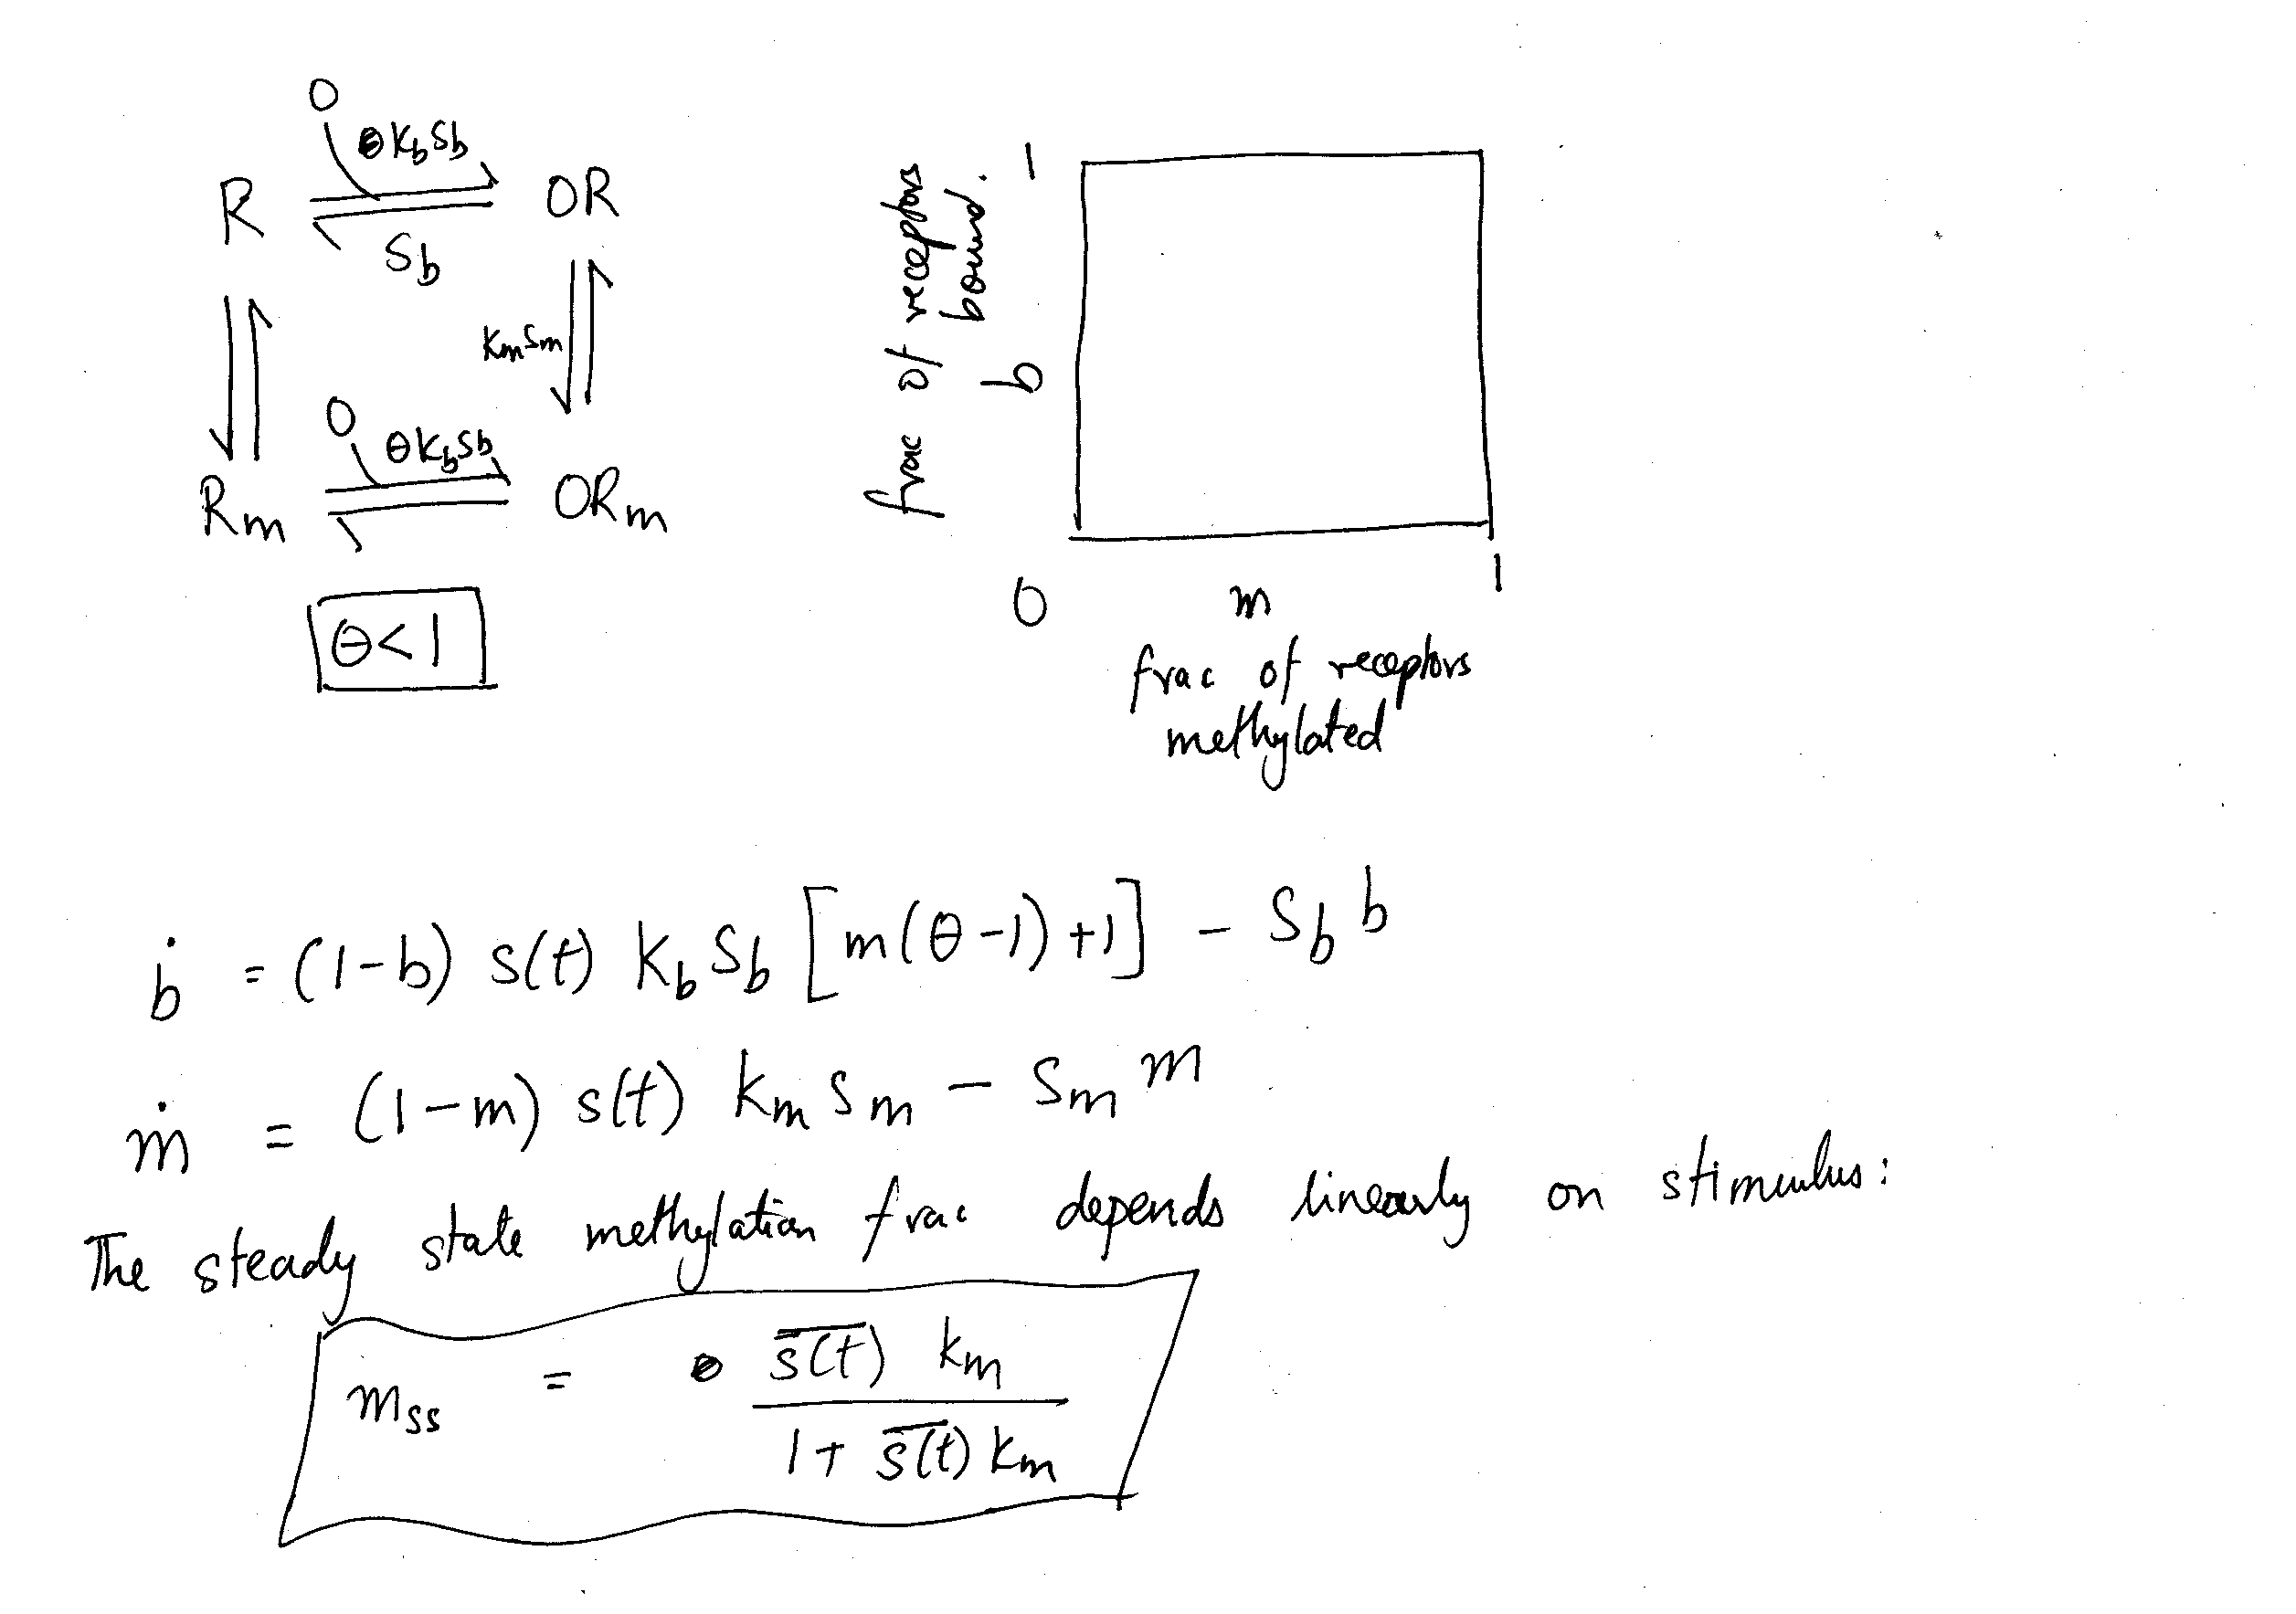 O
K_b S_b
R ⇌ OR
S_b
K_m S_m
O
θ K_b S_b
R_m ⇌ OR_m
θ < 1
frac of receptors
bound.
1
b
0
m
1
frac of receptors
methylated
ḃ = (1-b) s(t) K_b S_b [m(θ-1)+1] - S_b b
ṁ = (1-m) s(t) K_m S_m - S_m m
The steady state methylation frac depends linearly on stimulus:
m_ss = \overline{s(t)} K_m / 1 + \overline{s(t)} K_m